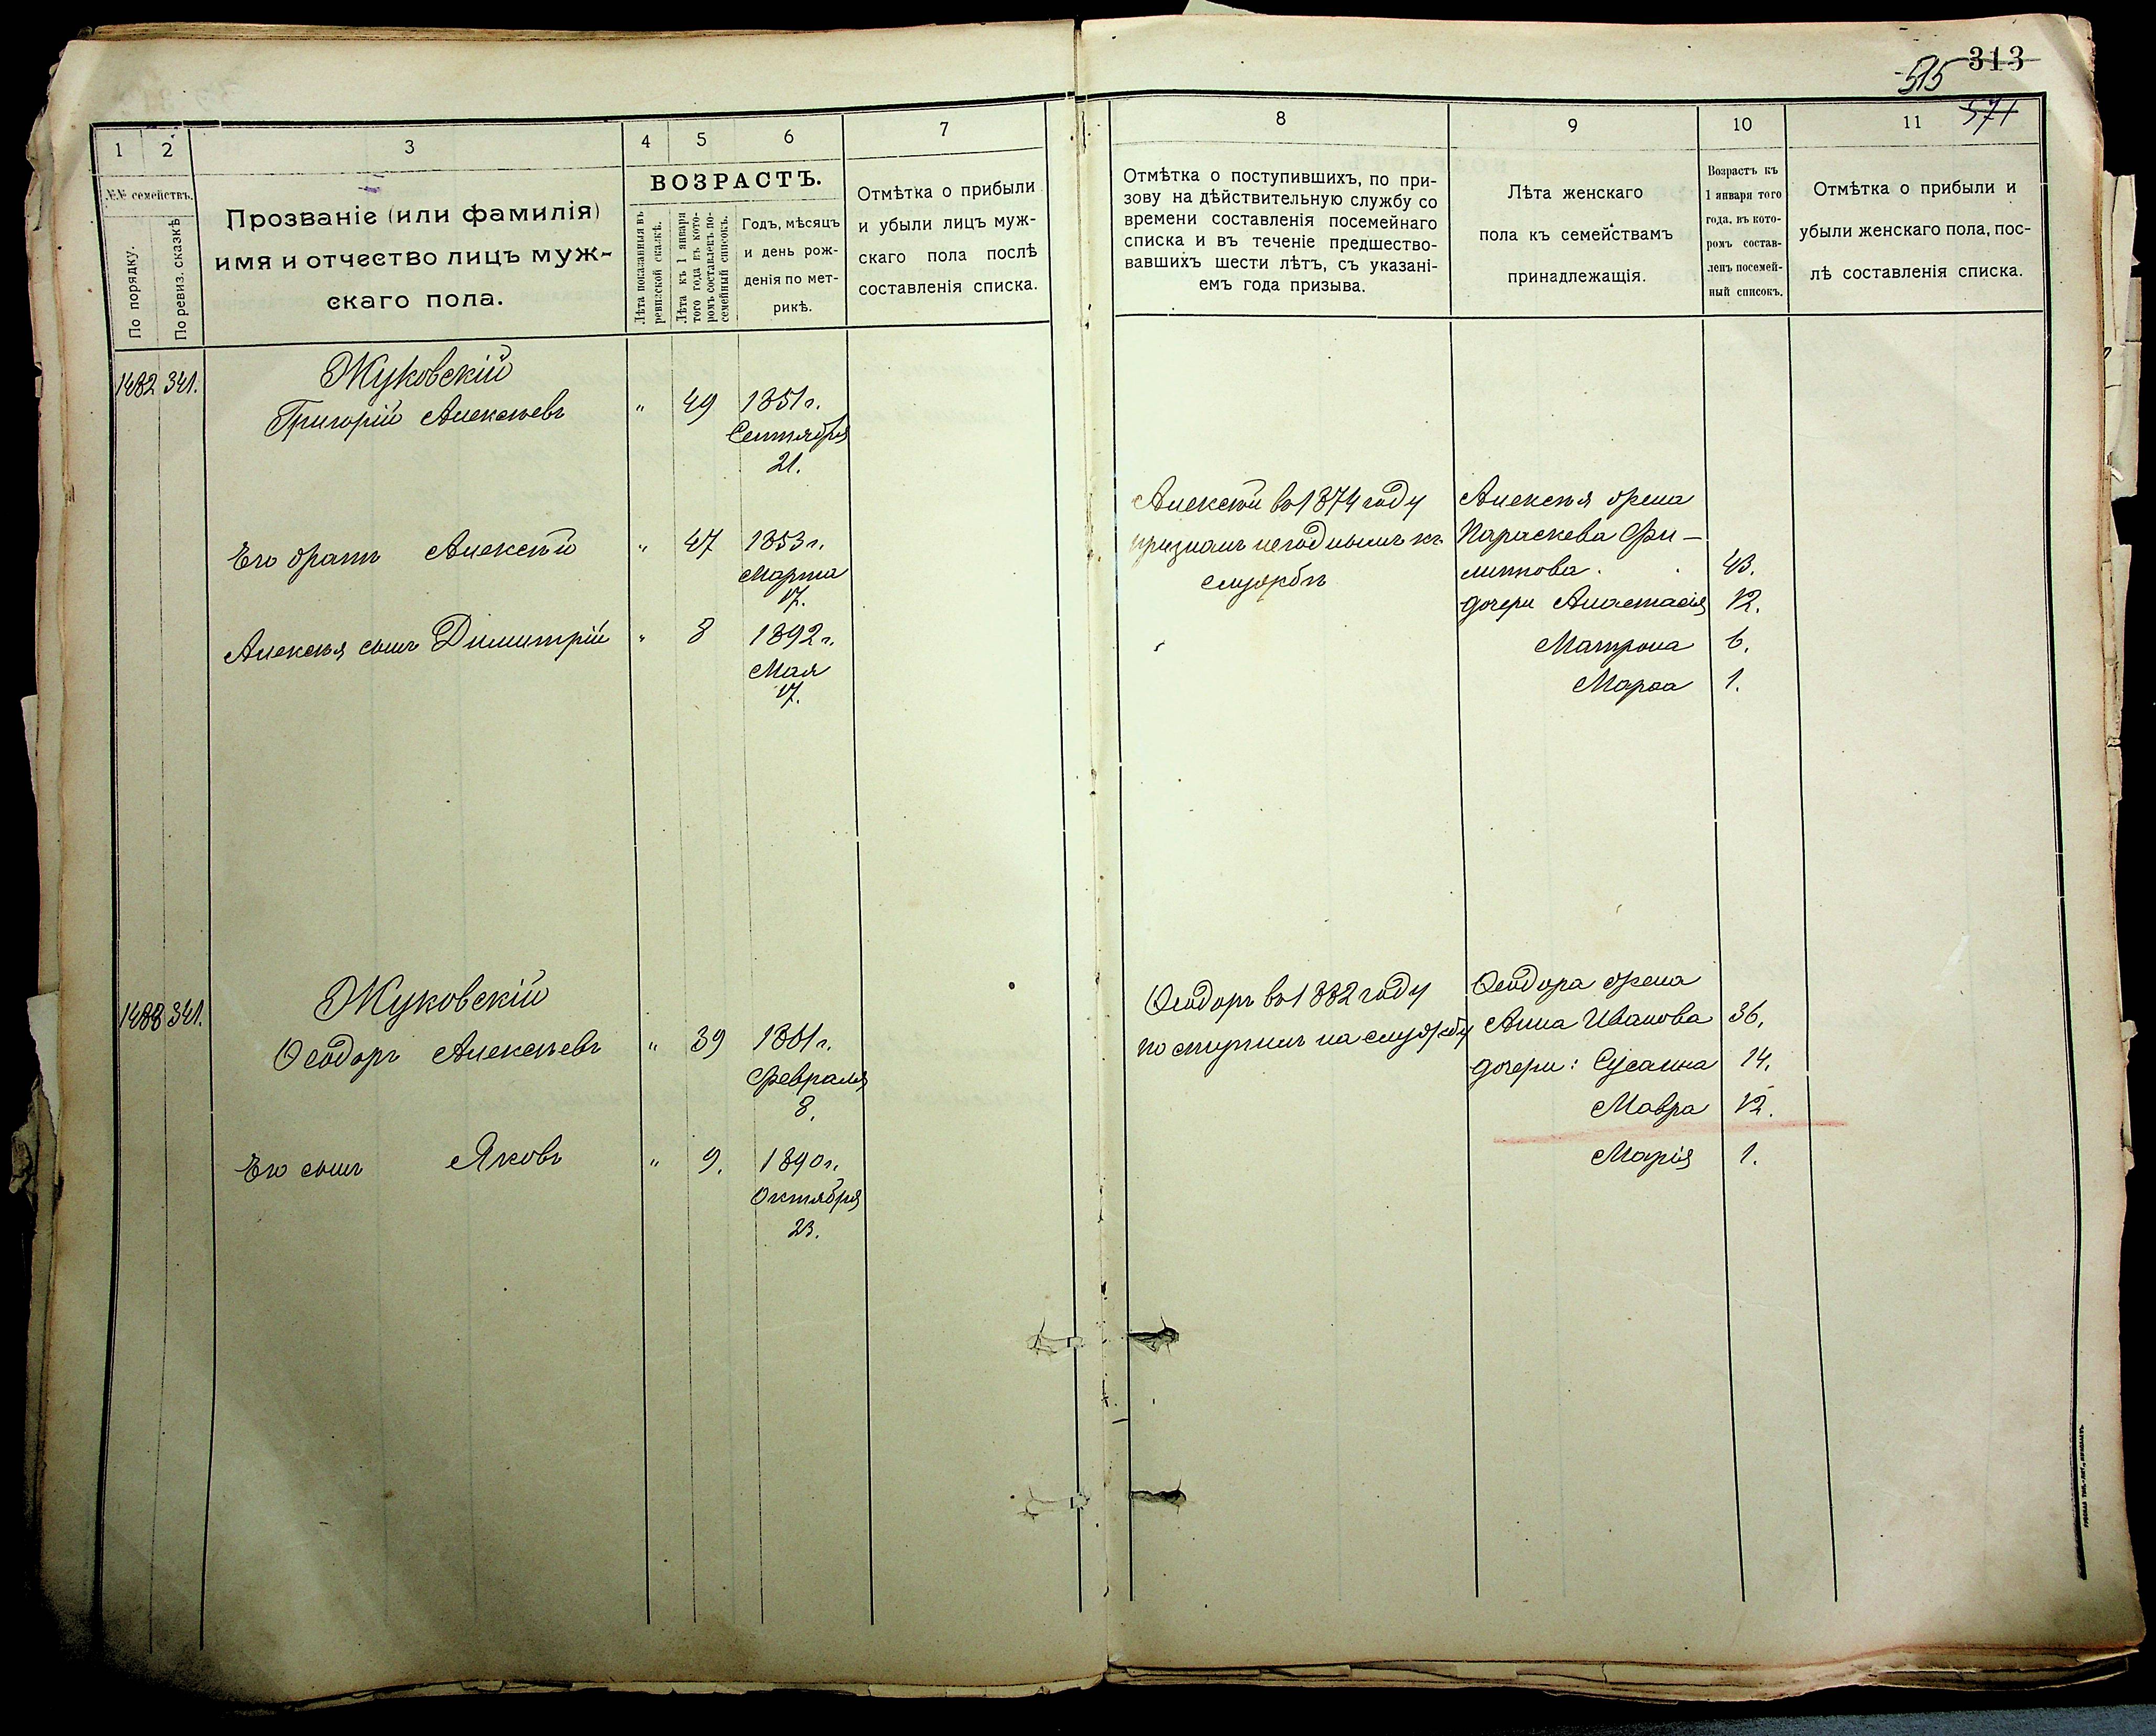 515 313
571
1 2 3 4 5 6 7
№№ семействъ.
По порядку.
По ревиз. сказкѣ
Прозваніе (или фамилія)
имя и отчество лицъ муж-
скаго пола.
ВОЗРАСТЪ.
Лѣта показанныя въ
ревизской сказкѣ.
Лѣта къ 1 января
того года въ кото-
ромъ составленъ по-
семейный списокъ.
Годъ, мѣсяцъ
и день рож-
денія по мет-
рикѣ.
Отмѣтка о прибыли
и убыли лицъ муж-
скаго пола послѣ
составленія списка.
8 9 10 11
Отмѣтка о поступившихъ, по при-
зову на дѣйствительную службу со
времени составленія посемейнаго
списка и въ теченіе предшество-
вавшихъ шести лѣтъ, съ указані-
емъ года призыва.
Лѣта женскаго
пола къ семействамъ
принадлежащія.
Возрастъ къ
1 января того
года, въ кото-
ромъ состав-
ленъ посемей-
ный списокъ.
Отмѣтка о прибыли и
убыли женскаго пола, пос-
лѣ составленія списка.
1482 341. Жуковскій
Григорій Алексѣевъ " 49 1851 г.
Сентября
21.
Его братъ Алексѣй " 47 1853 г.
Марта
17.
Алексѣя сынъ Димитрій " 8 1892 г.
Мая
17.
Алексѣй въ 1874 году
признанъ негоднымъ къ
службѣ
Алексѣя жена
Параскева Фи-
липпова. 43.
дочери Анастасія 12.
Матрона 6.
Марѳа 1.
1483 341. Жуковскій
Ѳеодоръ Алексѣевъ " 39 1861 г.
Февраля
8.
Его сынъ Яковъ " 9. 1890 г.
Октября
23.
Ѳеодоръ въ 1882 году
поступилъ на службу
Ѳеодора жена
Анна Иванова 36.
дочери: Сусанна 14.
Мавра 12.
Марія 1.